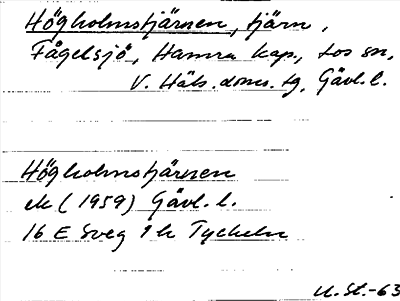 Högholmstjärnen, tjärn,
Fågelsjö, Hamra kap., Los sn,
V. Häls. doms. tg, Gävl. l.
Högholmstjärnen
ek (1959) Gävl. l.
16 E Sveg 9 h Tyckeln
U. St.-63